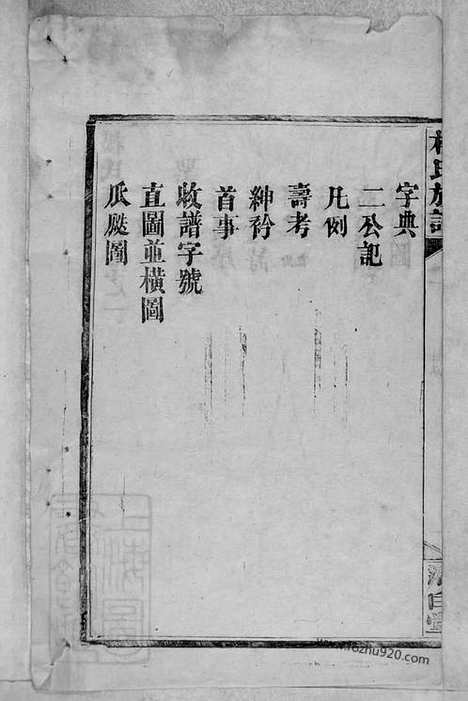 字典
二公記
凡例
壽考
紳衿
首事
收譜字號
直圖並橫圖
瓜瓞圖
氏族譜
www.fozhu920.com